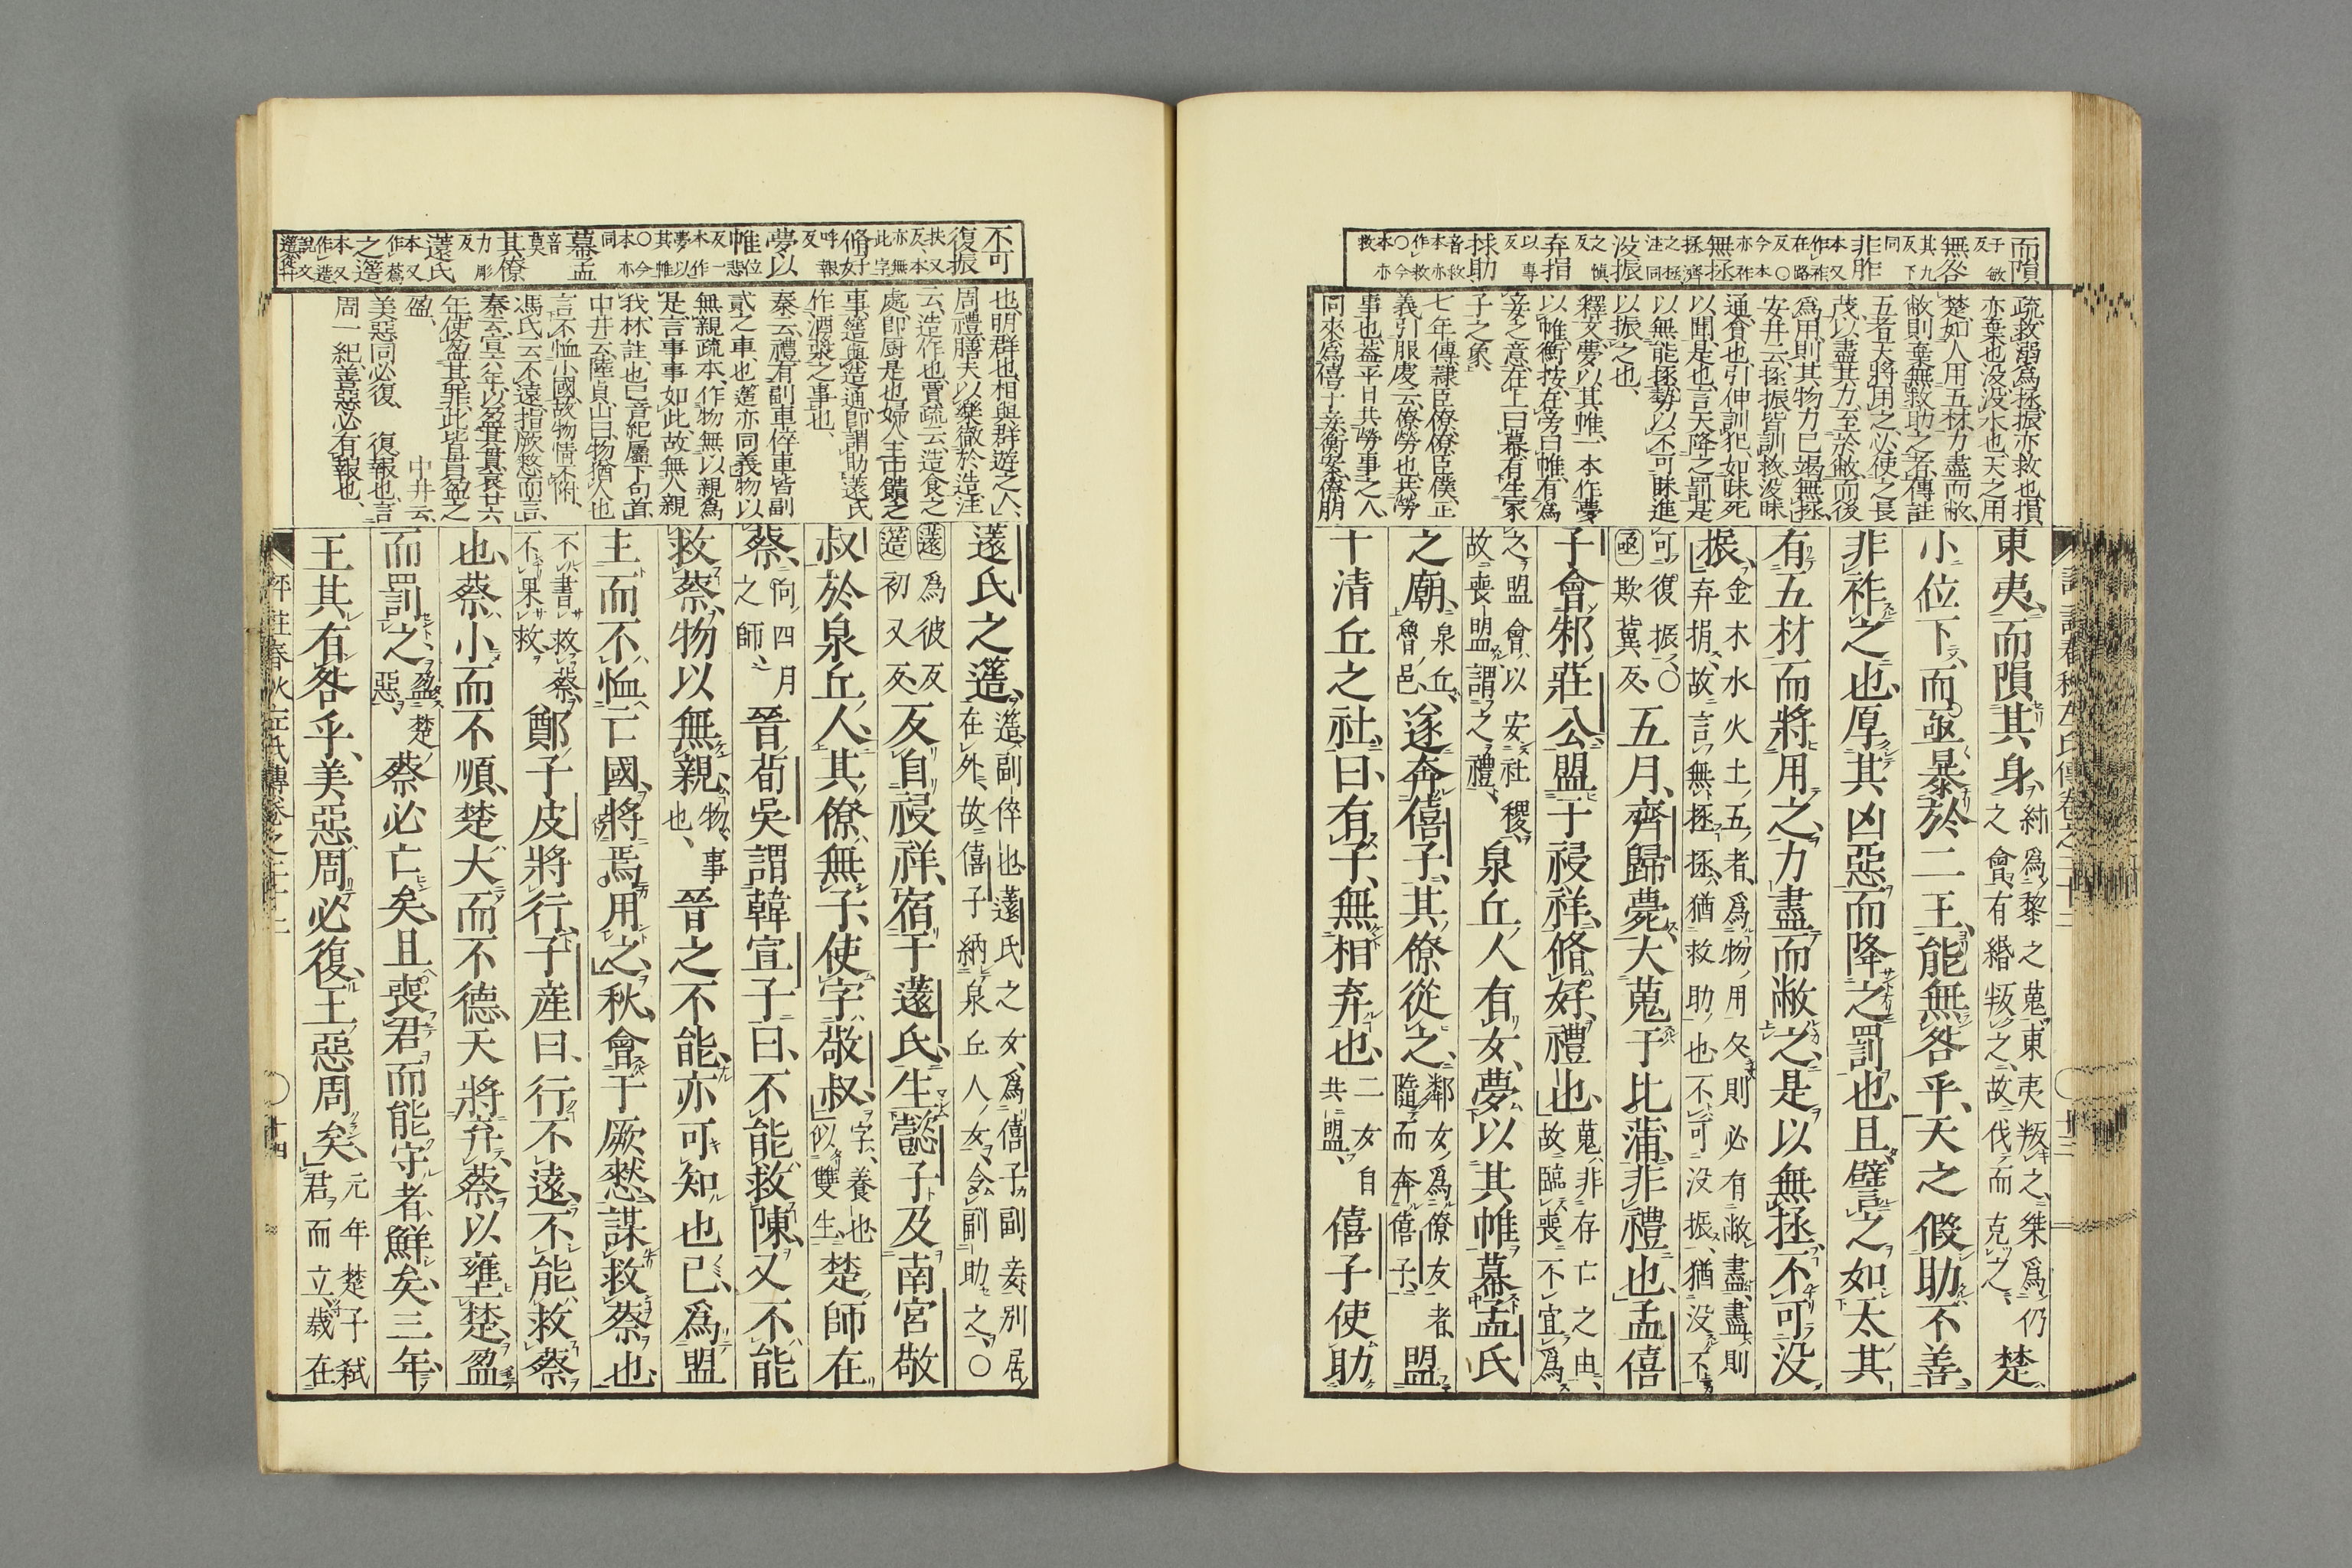 而隕
子敏反
無咎
其九反下同
非胙
本又作祚在路反○今本亦作祚
無拯
拯濟之拯注同
没振
之愼反
弃捐
以專反
捄助
音救本亦作救○今本亦救
疏救溺爲拯振亦救也損
亦棄也没没水也天之用
楚如人用五材力盡而敝
敝則棄無救助之者傳註
五者天將用之必使之長
茂以盡其力至於敝而後
爲用則其物力已竭無拯
安井云拯振皆訓救没昧
通貪也引伸訓犯如昧死
以聞是也言天降之罰是
以無能拯勢以不可昧進
以振之也
釋文夢以其帷一本作夢
以帷衡按在旁曰帷有爲
妾之意在上曰幕有生家
子之象
七年傳隷臣僚僚臣僕正
義引服虔云僚勞也共勞
事也蓋平日共勞事之人
同來爲僖子妾衡案僚朋
東夷而隕其身紂爲黎之蒐東夷叛之桀爲仍之會有緡叛之故伐而克之楚
小位下而亟暴於二王能無咎乎天之假助不善
非祚之也厚其凶惡而降之罰也且譬之如天其
有五材而將用之力盡而敝之是以無拯不可没
振金木水火土五者爲物用久則必有敝盡盡則弃捐故言無拯拯猶救助也不可没振猶没不
可復振○亟欺冀反五月齊歸薨大蒐于比蒲非禮也孟僖
子會邾莊公盟于祲祥脩好禮也蒐非存亡之由故臨喪不宜爲
之盟會以安社稷故喪盟謂之禮泉丘人有女夢以其帷幕孟氏
之廟泉丘魯邑遂奔僖子其僚從之鄰女爲僚友者隨而奔僖子盟
于清丘之社曰有子無相弃也二女自共盟僖子使助
不可
復振
扶又反本亦無此字
脩好
呼報反
夢以
帷
位悲反一本作夢以其帷○今本亦同
幕孟
音莫
其僚
力彫反
薳氏
本又作蒍
之簉
本又作造說文簉從艸
也明群也相與群遊之人
周禮膳夫以樂徹於造注
云造作也賈疏云造食之
處即厨是也婦人主中饋之
事簉與造通即謂助薳氏
作酒漿之事也
秦云禮有副車倅車皆副
貳之車也簉亦同義物以
無親疏本作物無以親爲
是言事事如此故無人親
我林註也已音紀屬下句首
中井云陸貞山曰物猶人也
言不恤小國故物情不附
馮氏云不遠指厥憖而言
秦云宣六年以盈其貫哀廿六
年使盈其罪此皆貫盈之
盈
中井云
美惡同必復 復報也言
周一紀善惡必有報也
薳氏之簉簉副倅也薳氏之女爲僖子副妾別居在外故僖子納泉丘人女令副助之○
薳爲彼反簉初又反反自祲祥宿于薳氏生懿子及南宮敬
叔於泉丘人其僚無子使字敬叔字養也似雙生楚師在
蔡向四月之師晉荀吳謂韓宣子曰不能救陳又不能
救蔡物以無親物事也晉之不能亦可知也已爲盟
主而不恤亡國將焉用之秋會于厥憖謀救蔡也
不書救蔡不果救鄭子皮將行子産曰行不遠不能救蔡
也蔡小而不順楚大而不德天將弃蔡以壅楚盈
而罰之盈楚惡蔡必亡矣且喪君而能守者鮮矣三年
王其有咎乎美惡周必復王惡周矣元年楚子弑君而立歲在